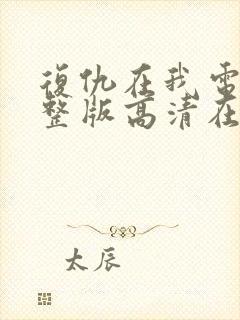 復仇在我電
整版高清在
太辰